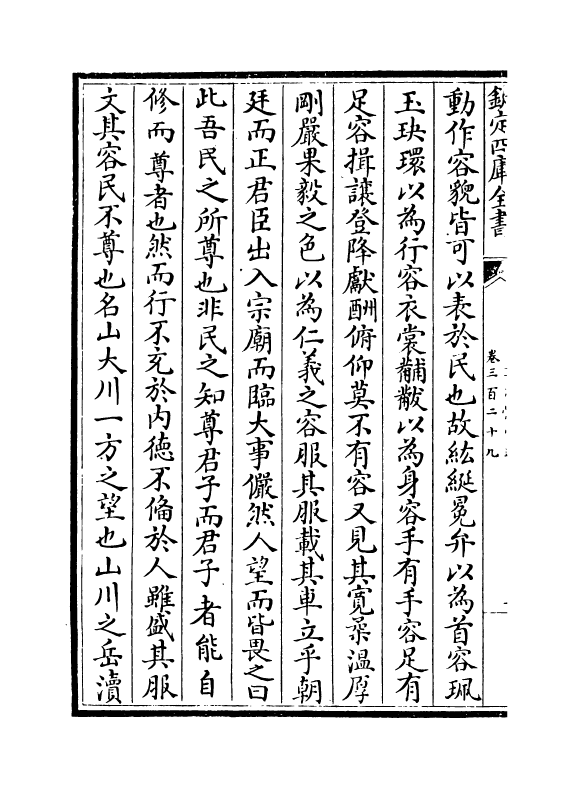 欽定四庫全書
卷三百二十九
動作容貌皆可以表於民也故紘綖冕弁以為首容珮
玉玦環以為行容衣裳黼黻以為身容手有手容足有
足容揖讓登降獻酬俯仰莫不有容又見其寛柔溫厚
剛嚴果毅之色以為仁義之容服其服載其車立乎朝
廷而正君臣出入宗廟而臨大事儼然人望而皆畏之曰
此吾民之所尊也非民之知尊君子而君子者能自
修而尊者也然而行不充於内徳不偹於人雖盛其服
文其容民不尊也名山大川一方之望也山川之岳瀆